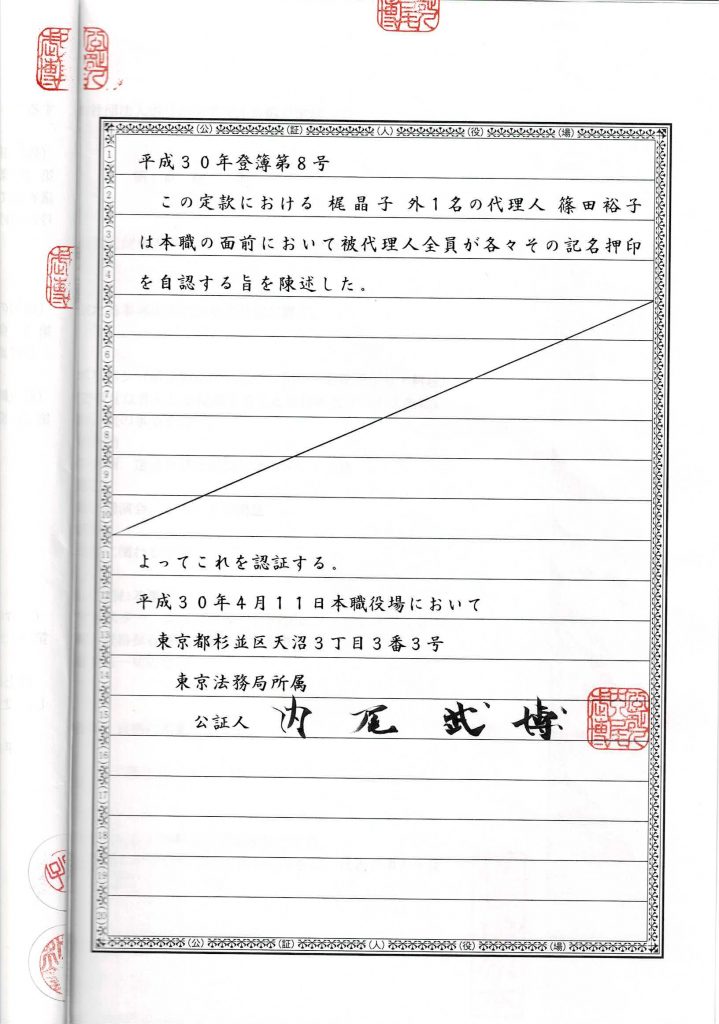 (公) (証) (人) (役) (場)
平成30年登簿第8号
この定款における 梶晶子 外1名の代理人 篠田裕子
は本職の面前において被代理人全員が各々その記名押印
を自認する旨を陳述した。
よってこれを認証する。
平成30年4月11日本職役場において
東京都杉並区天沼3丁目3番3号
東京法務局所属
公証人 内尾武博
(公) (証) (人) (役) (場)